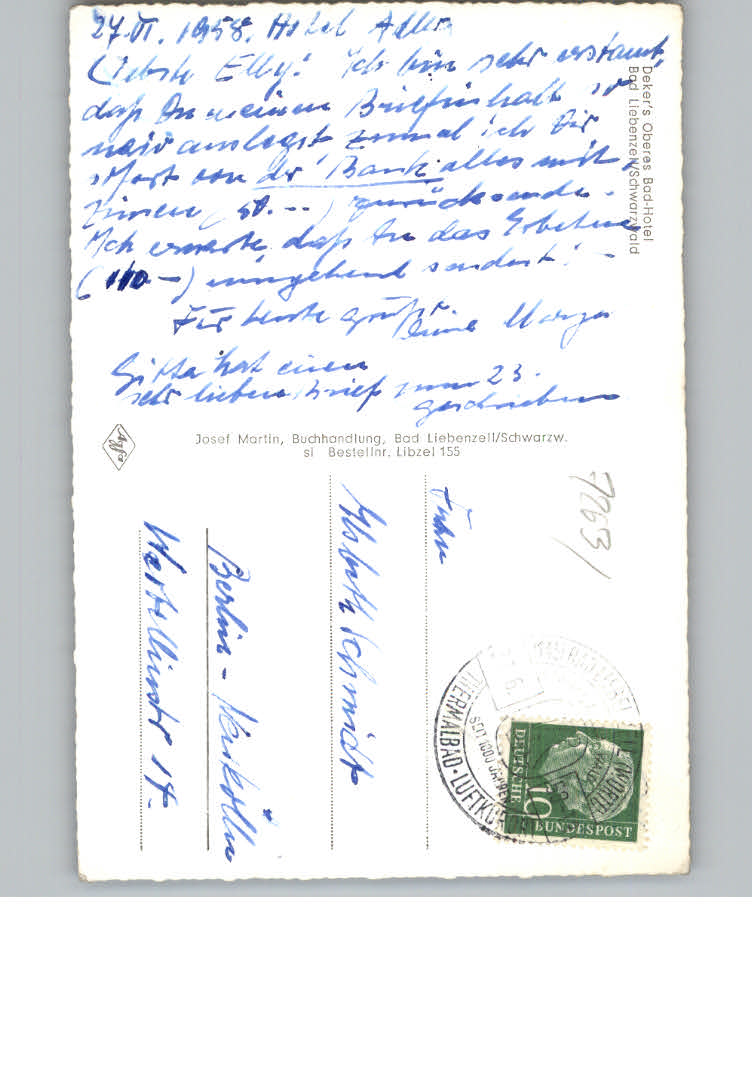 27.VI. 1958. Hotel Adler
Liebste Elly! Ich bin sehr erstaunt,
daß Du meinen Briefinhalt so
auslegst zumal ich Dir
sofort von der Bank alles mit
Zinsen (50.--) zurücksende.
Ich erwarte daß Du das Erbetene
(110 -) umgehend sendest! -
Für heute Grüße Deine
Gitta hat einen
sehr lieben Brief zum 23.
geschrieben
Deker's Oberes Bad-Hotel
Bad Liebenzell/Schwarzwald
Agfa
Josef Martin, Buchhandlung, Bad Liebenzell/Schwarzw.
si Bestellnr. Libzel 155
7263/
Frau
Elsbeth Schmidt
Berlin-Neukölln
Str 14.
THERMALBAD · LUFTKURORT
SEIT 1000 JAHREN
DEUTSCHE
10
BUNDESPOST